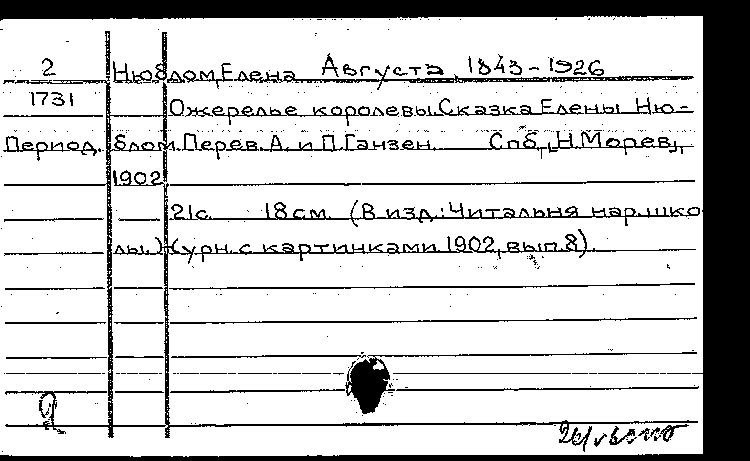 2 Нюблом, Елена Августа, 1843-1926
1731 Ожерелье королевы. Сказка Елены Ню-
Период. блом. Перев. А. и П. Ганзен. Спб, "Н. Морев",
1902
21с. 18см. (В изд.: Читальня нар. шко
лы. Журн. с картинками 1902, вып. 8).